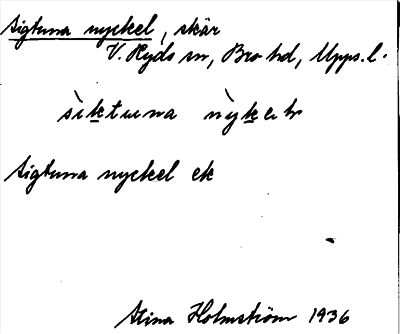 Sigtuna nyckel, skär
V. Ryds sn, Bro hd, Upps.l.
sìktuna nỳkelr
Sigtuna nyckel ek
Stina Holmström 1936